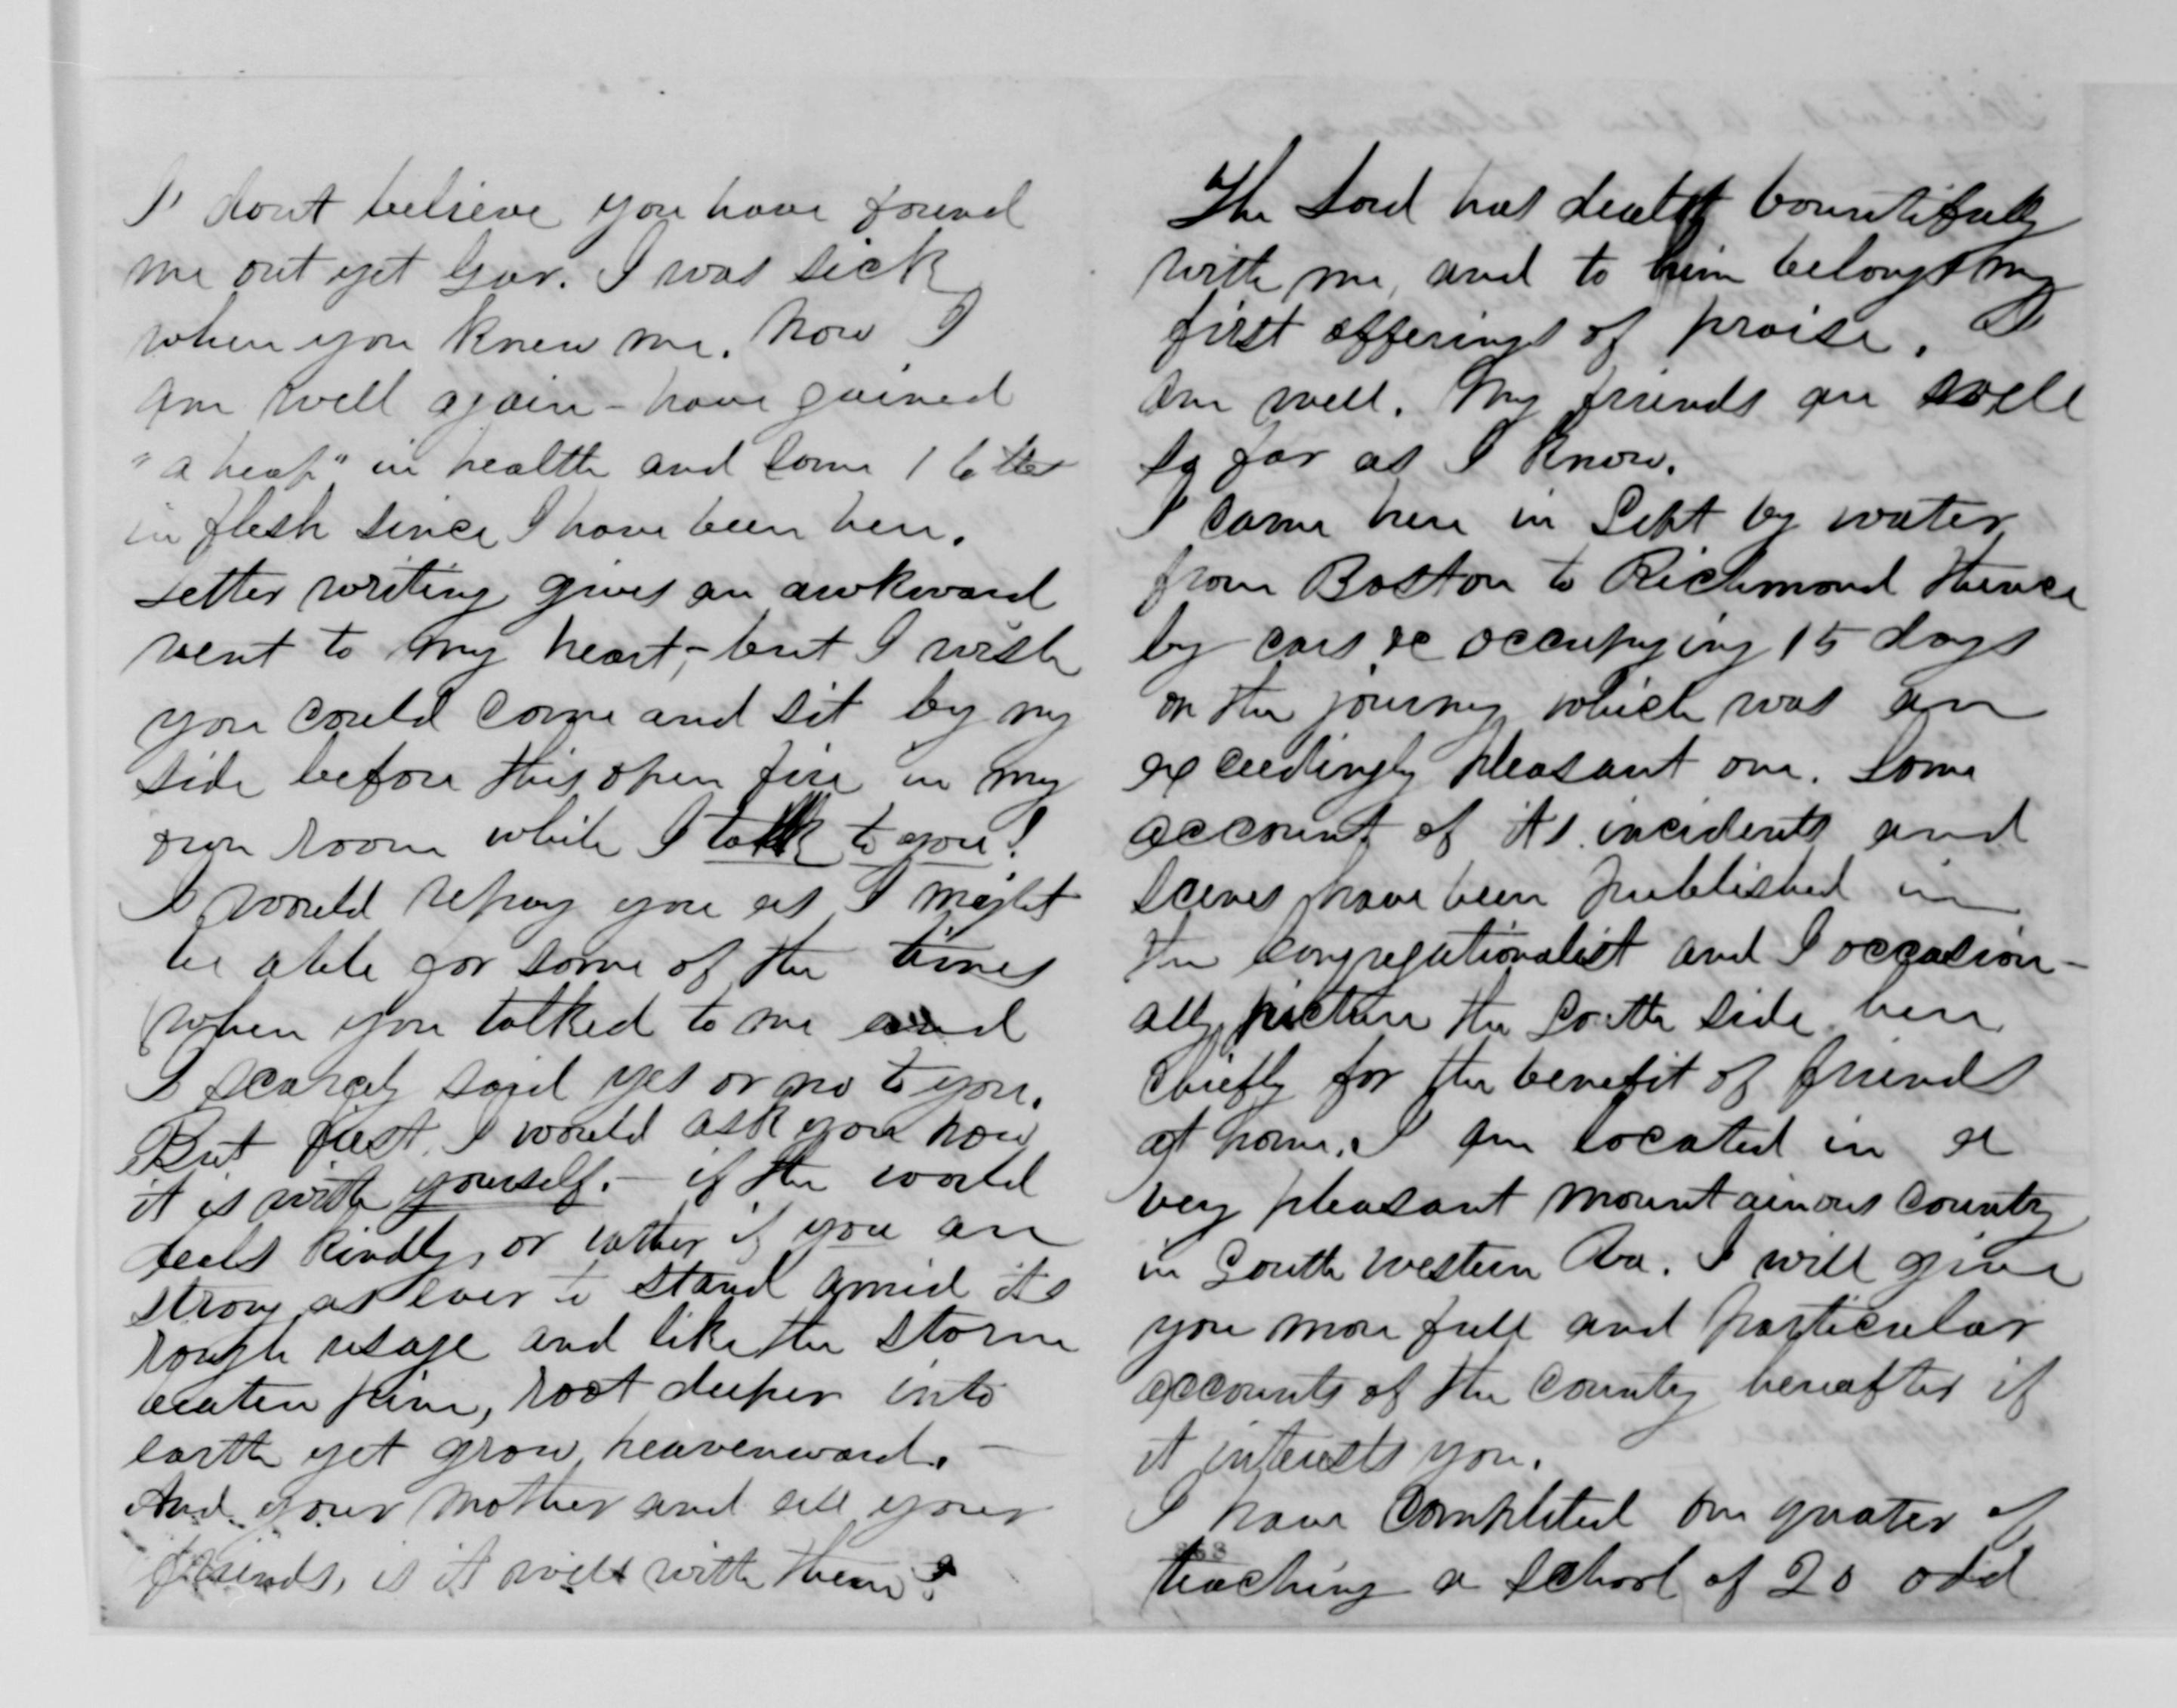 I dont believe you have found
me out yet Gar. I was sick
when you knew me. Now I
am well again - have gained
"a heap" in health and some 16 lbs
in flesh since I have been here.
Letter writing gives an awkward
vent to my heart, - but I wish
you could come and sit by my
side before this open fire in my
own room while I talk to you!
I would repay you as I might
be able for some of the times
when you talked to me and
I scarcely said yes or no to you.
But first, I would ask you how
it is with yourself. - if the world
deals kindly, or rather if you are
strong as ever to stand amid its
rough usage and like the storm
beaten pine, root deeper into
earth yet grow heavenward. -
And your mother and all your
friends, is it well with them?
The Lord has dealt bountifully
with me, and to him belongs my
first offerings of praise. I
am well. My friends are well
so far as I know.
I came here in Sept by water
from Boston to Richmond thence
by cars &c occupying 15 days
on the journey which was an
exceedingly pleasant one. Some
account of its incidents and
scenes have been published in
the Congregationalist and I occasion-
ally picture the South side here
chiefly for the benefit of friends
at home. I am located in a
very pleasant mountainous county
in South western Va. I will give
you more full and particular
accounts of the county hereafter if
it interests you.
I have completed one quater of
teaching a school of 20 odd